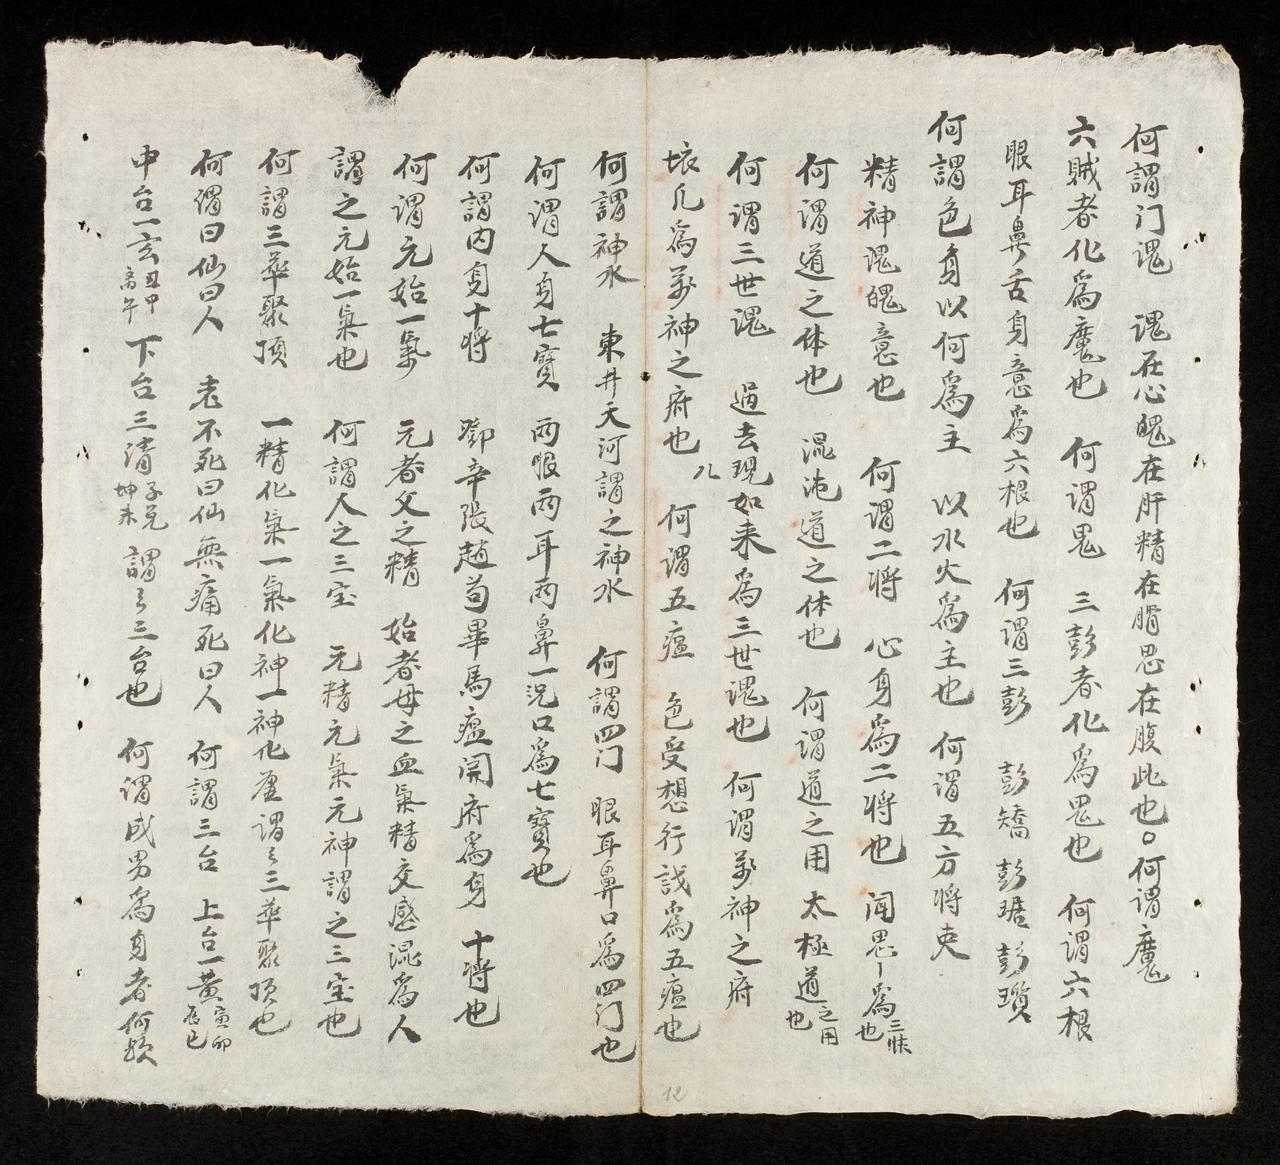 何謂门䰟 䰟在心魄在肝精在腎思在腹此也○何谓魔
六贼者化爲魔也 何谓鬼 三彭者化爲鬼也 何谓六根
眼耳鼻舌身意爲六根也 何谓三彭 彭矯 彭琚 彭瓆
何謂色身以何爲主 以水火爲主也 何谓五方將吏
精神䰟魄意也 何谓二将 心身爲二将也 闻思 爲三昧也
何谓道之体也 混沌道之体也 何谓道之用 太極道之用也
何谓三世䰟 過去現如来爲三世䰟也 何谓萬神之府
爲萬神之府也 何谓五瘟 色受想行 爲五瘟也
何謂神水 東井天河謂之神水 何謂四门 眼耳鼻口爲四门也
何谓人身七寳 两眼两耳两鼻一 口爲七寳也
何謂内身十将 鄧辛張趙苟畢馬瘟関府爲身 十將也
何谓元始一氣 元者父之精 始者母之血氣精交感混爲人
謂之元始一氣也 何謂人之三宝 元精元氣元神謂之三宝也
何謂三華聚頂 一精化氣一氣化神一神化虚谓之三華聚頂也
何谓曰仙曰人 老不死曰仙 無痛死曰人 何謂三台 上台一黄寅卯辰巳
中台一玄丑甲离午 下台三清子兑坤未 謂之三台也 何谓成男爲身者何
12